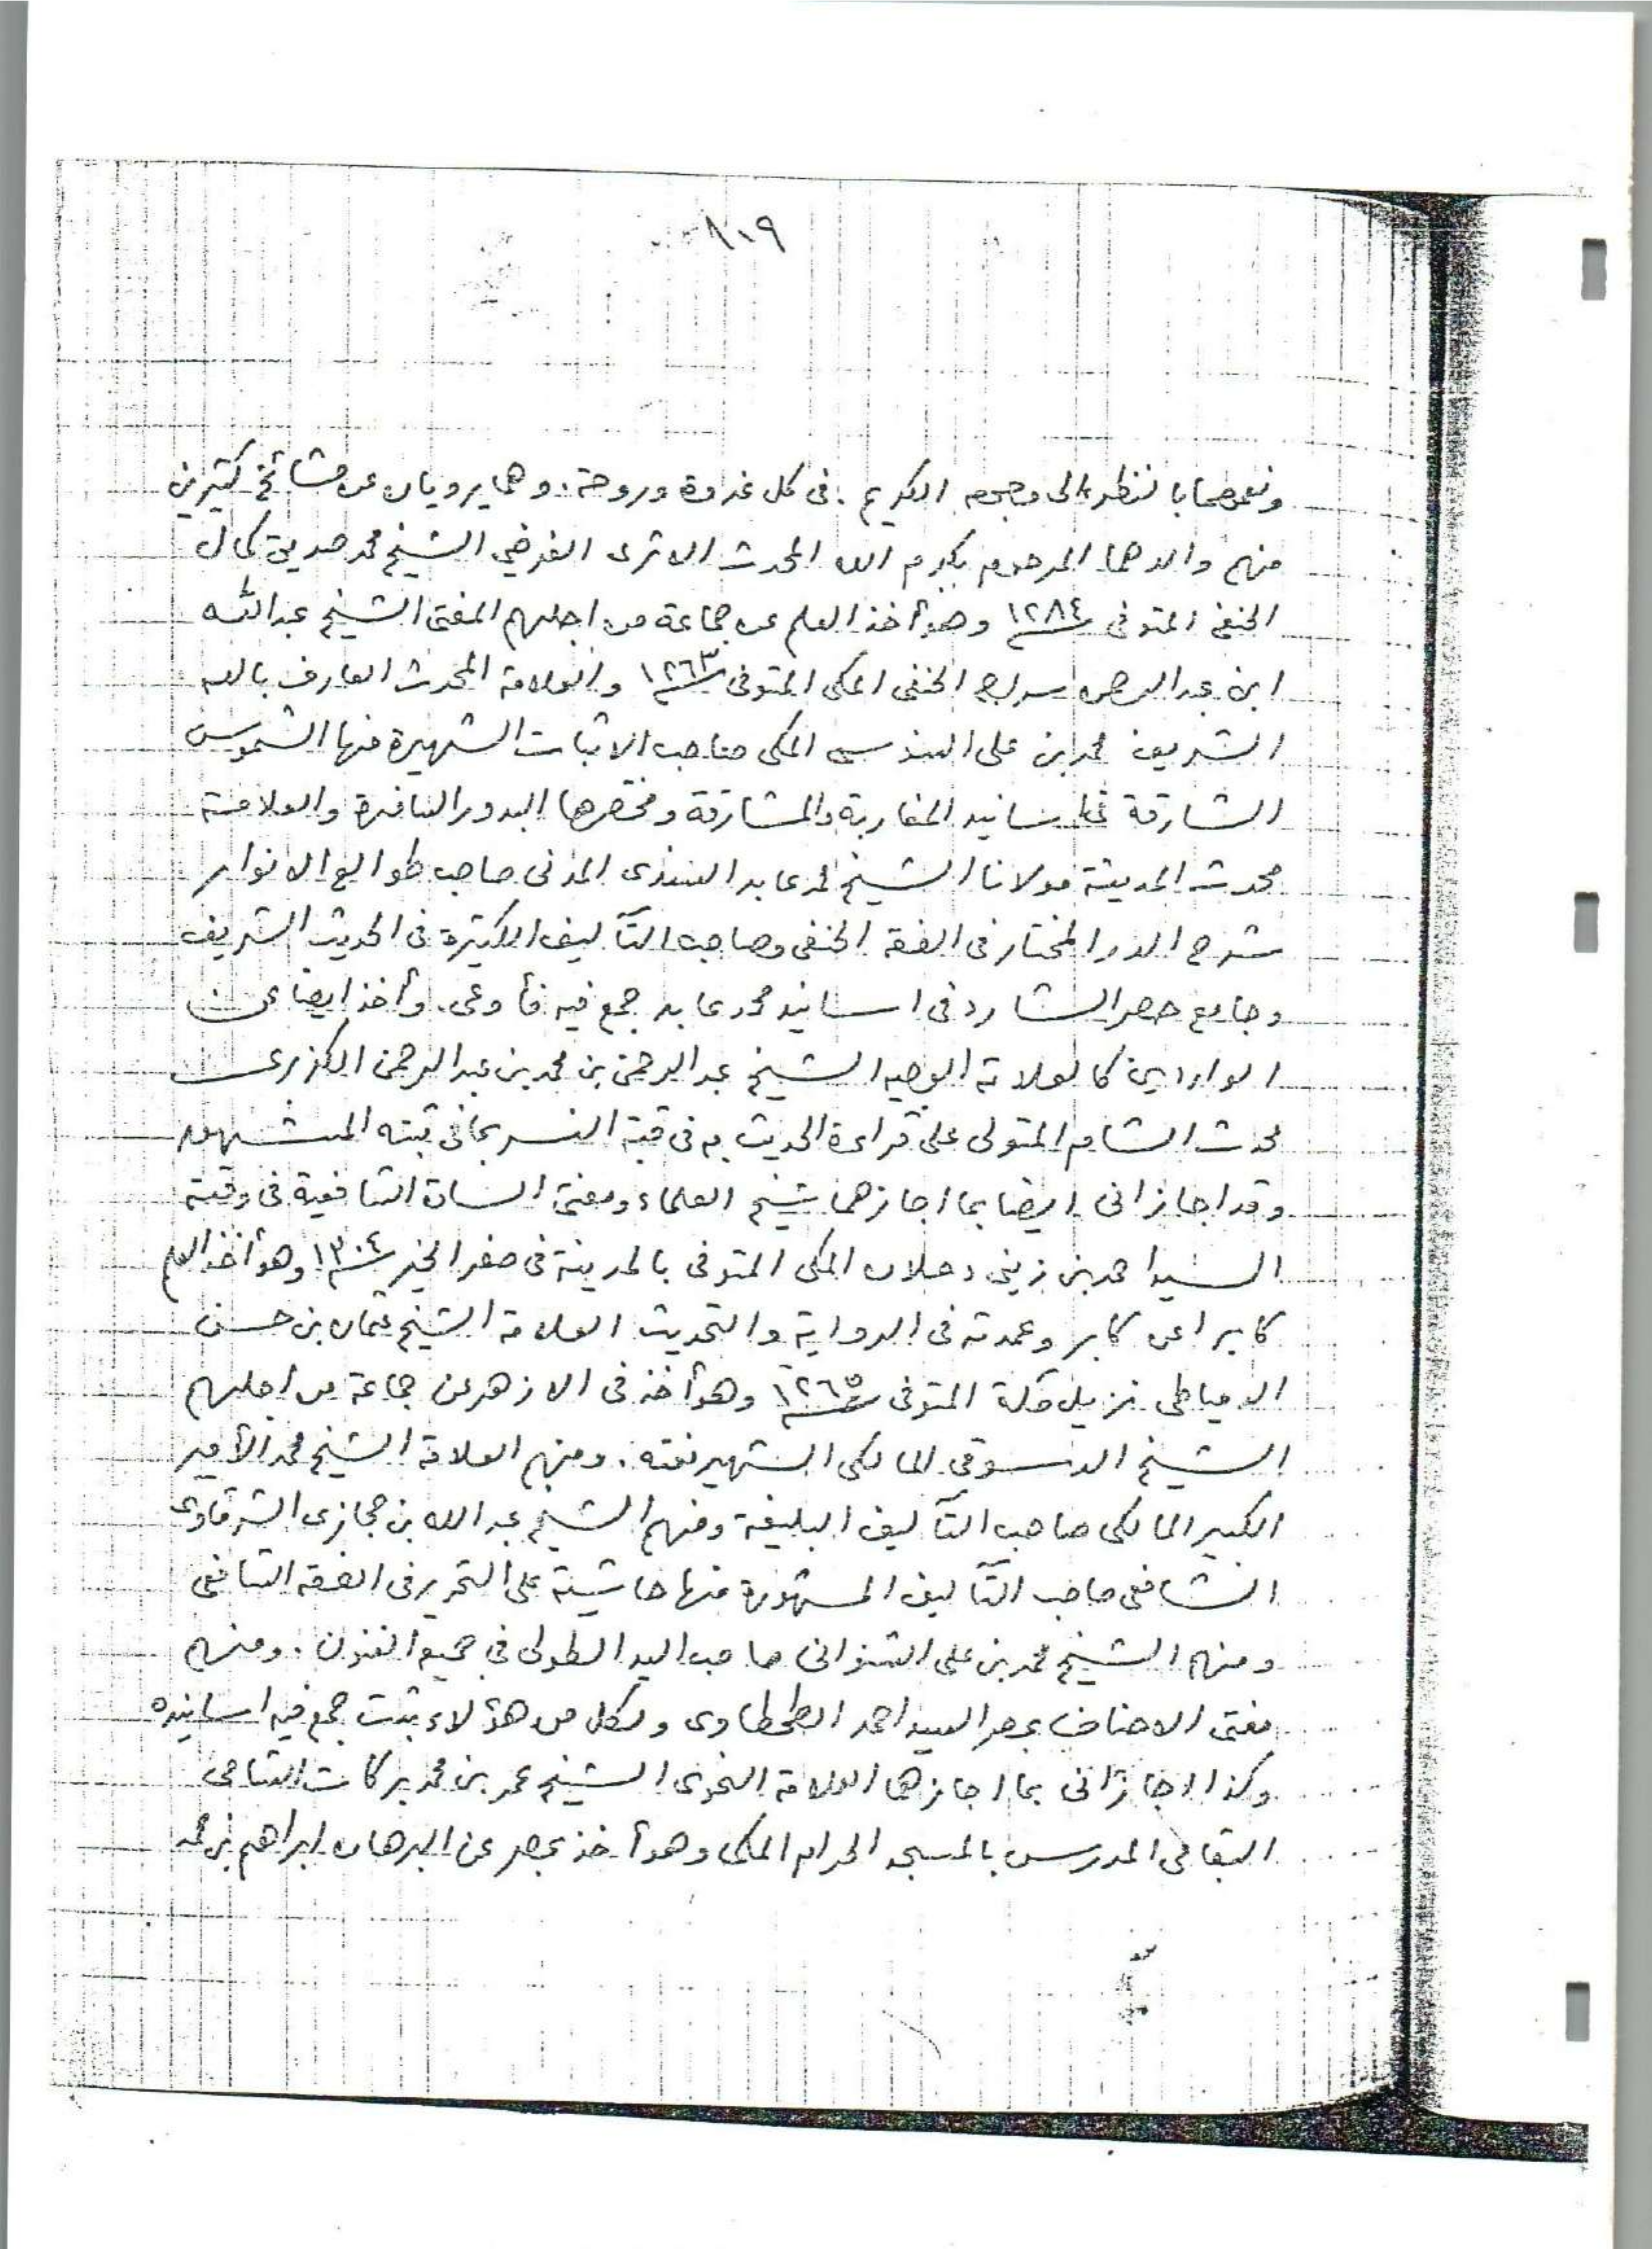 ٨٠٩
ونعمهما بالنظر الى وجهه الكريم . فى كل غدوة وروحة . وهما يرويان عن مشائخ كثيرين
منهم والدهما المرحوم بكرم الله المحدث الاثرى الفرضي الشيخ محمد صديق كمال
الحنفى المتوفى ١٢٨٤ وهو أخذ العلم عن جماعة من اجلهم المفتى الشيخ عبدالله
ابن عبدالرحمن سراج الحنفى المكى المتوفى ١٢٦٣ والعلامة المحدث العارف بالله
الشريف محمد بن على السنوسى المكى صاحب الاثبات الشهيرة منها الشموس
الشارقة سانيد المغاربة والمشارقة ومختصرها البدور السافرة والعلامة
محدث المدينة مولانا الشيخ محمد عابد السندى المدنى صاحب طوالع الانوار
شرح الدر المختار فى الفقه الحنفى وصاحب التآليف الكثيرة فى الحديث الشريف
وجامع حصر الشارد فى اسانيد محمد عابد جمع فيه فأوعى . وأخذ ايضا عن
الواردين كالعلامة الوجيه الشيخ عبد الرحمن بن محمد بن عبد الرحمن الكزبرى
محدث الشام المتولى على قراءة الحديث به فى قبة النسر بجا فى قبته المشهور
وقد اجازانى ايضا بما اجازهما شيخ العلماء ومفتى السادة الشافعية فى وقته
السيد احمد بن زينى دحلان المكى المتوفى بالمدينة فى صفر الخير ١٣٠٤ وهو أخذ العلم
كابرا عن كابر وعمدته فى الرواية والتحديث العلامة الشيخ عثمان بن حسن
الدمياطى نزيل مكة المتوفى ١٢٦٥ وهو أخذ فى الازهر عن جماعة من اجلهم
الشيخ الدسوقى المالكى الشهير نفته . ومنهم العلامة الشيخ محمد الأمير
الكبير المالكى صاحب التآليف البليغة ومنهم الشيخ عبد الله بن حجازى الشرقاوى
الشافعى صاحب التآليف المشهورة منها حاشيته على التحرير فى الفقه الشافعى
ومنهم الشيخ محمد بن على الشنوانى صاحب اليد الطولى في جميع الفنون . ومنهم
مفتى الاحناف بمصر السيد احمد الطحطاوى ولكل من هؤلاء ثبت جمع فيه اسانيده
وكذا اجازانى بما اجازهما العلامة النحوى الشيخ عمر بن محمد بركات الشامى
البقاعى المدرس بالمسجد الحرام المكى وهو أخذ بمصر عن البرهان ابراهيم بن محمد